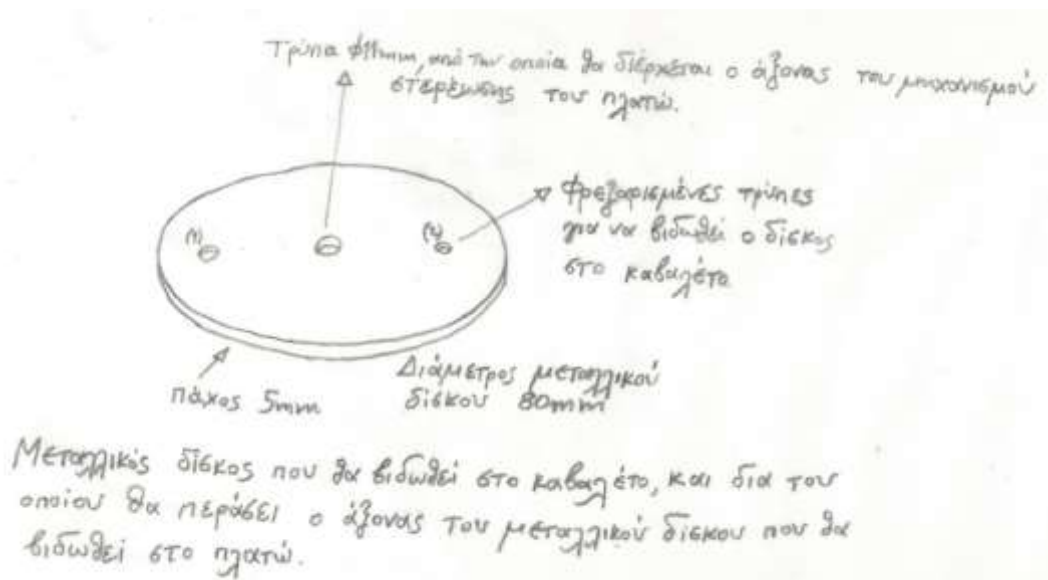 Τρύπα φ11mm, από την οποία θα διέρχεται ο άξονας του μηχανισμού
στερέωσης του πλατώ.
(1)
(2)
Φρεζαρισμένες τρύπες
για να βιδωθεί ο δίσκος
στο καβαλέτο
πάχος 5mm
Διάμετρος μεταλλικού
δίσκου 80mm
Μεταλλικός δίσκος που θα βιδωθεί στο καβαλέτο, και δια του
οποίου θα περάσει ο άξονας του μεταλλικού δίσκου που θα
βιδωθεί στο πλατώ.